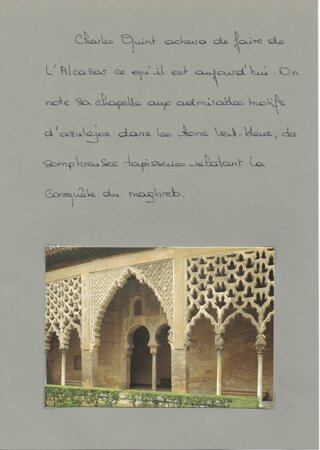 Charles Quint acheva de faire de
L'Alcazar ce qu'il est aujourd'hui. On
note sa chapelle aux admirables motifs
d'azulejos dans les tons vert-bleus, de
somptueuses tapisseries relatant la
Conquête du maghreb.